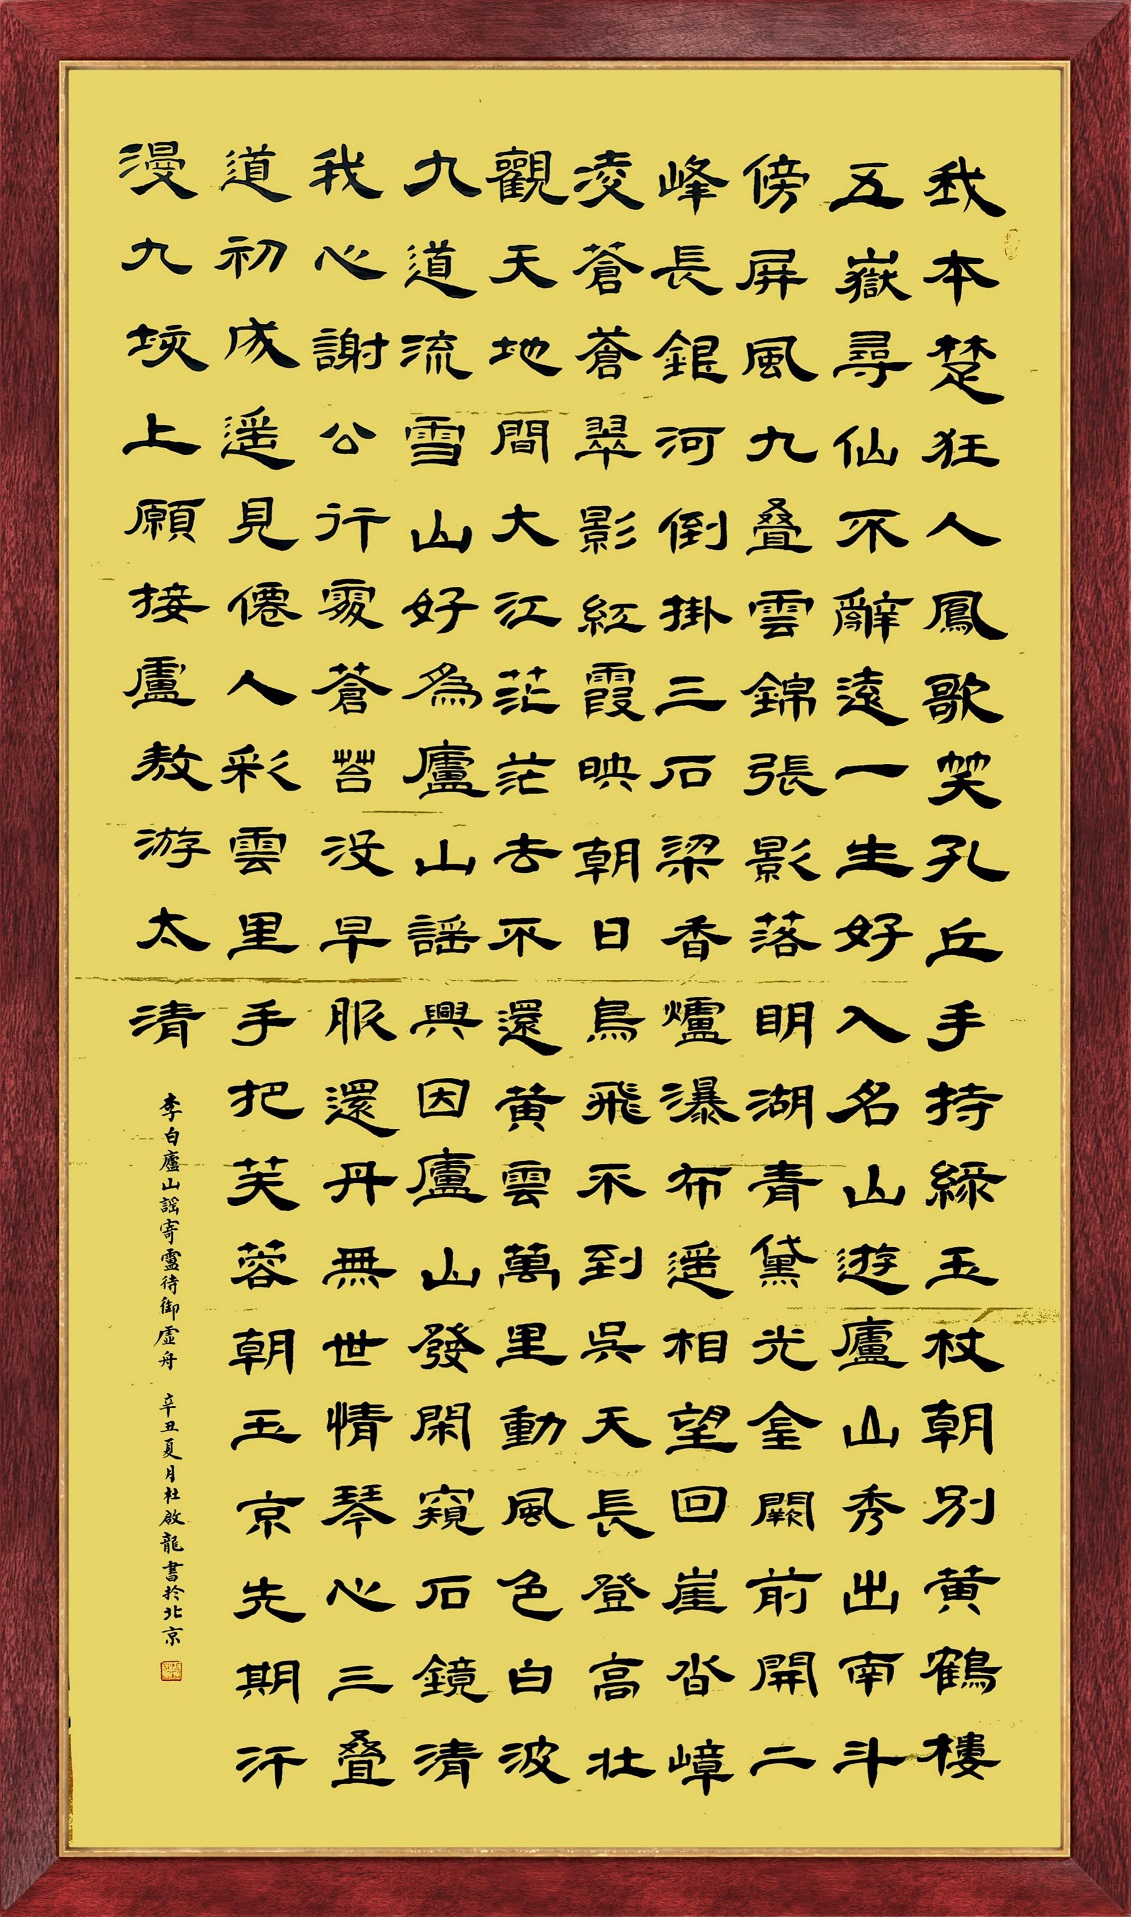 我本楚狂人鳳歌笑孔丘手持緑玉杖朝別黄鶴樓
五嶽尋仙不辭遠一生好入名山遊廬山秀出南斗
傍屏風九叠雲錦張影落明湖青黛光金闕前開二
峰長銀河倒掛三石梁香爐瀑布遥相望回崖沓嶂
凌蒼蒼翠影紅霞映朝日鳥飛不到吳天長登高壯
觀天地間大江茫茫去不還黄雲萬里動風色白波
九道流雪山好為廬山謡興因廬山發閑窺石鏡清
我心謝公行處蒼苔没早服還丹無世情琴心三叠
道初成遥見僊人彩雲里手把芙蓉朝玉京先期汗
漫九垓上願接盧敖游太清
李白廬山謡寄盧待御虚舟 辛丑夏月杜啟龍書於北京